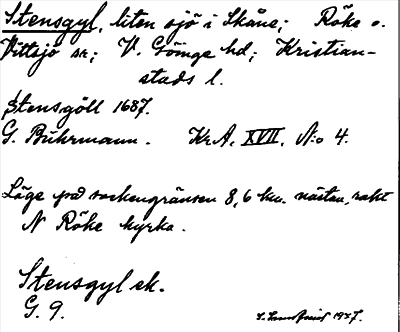 Stensgyl, liten sjö i Skåne; Röke o.
Vittsjö sn; V. Göinge hd; Kristian-
stads l.
Stensgöll 1687.
G. Buhrmann. Kr.A. XVII, N:o 4.
Läge på sockengränsen 8,6 km. nästan rakt
N Röke kyrka.
Stensgyl ek.
G. 9.
1937.